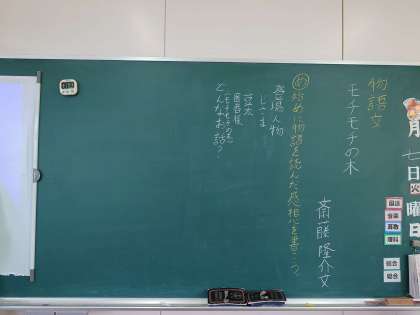 物語文
モチモチの木
斎藤隆介文
め 始めに物語を読んだ感想を書こう。
登場人物
じさま
豆太
医者様
(モチモチの木)
どんなお話?
月
七
日
火
曜
日
国語
音楽
算数
理科
総合
総合